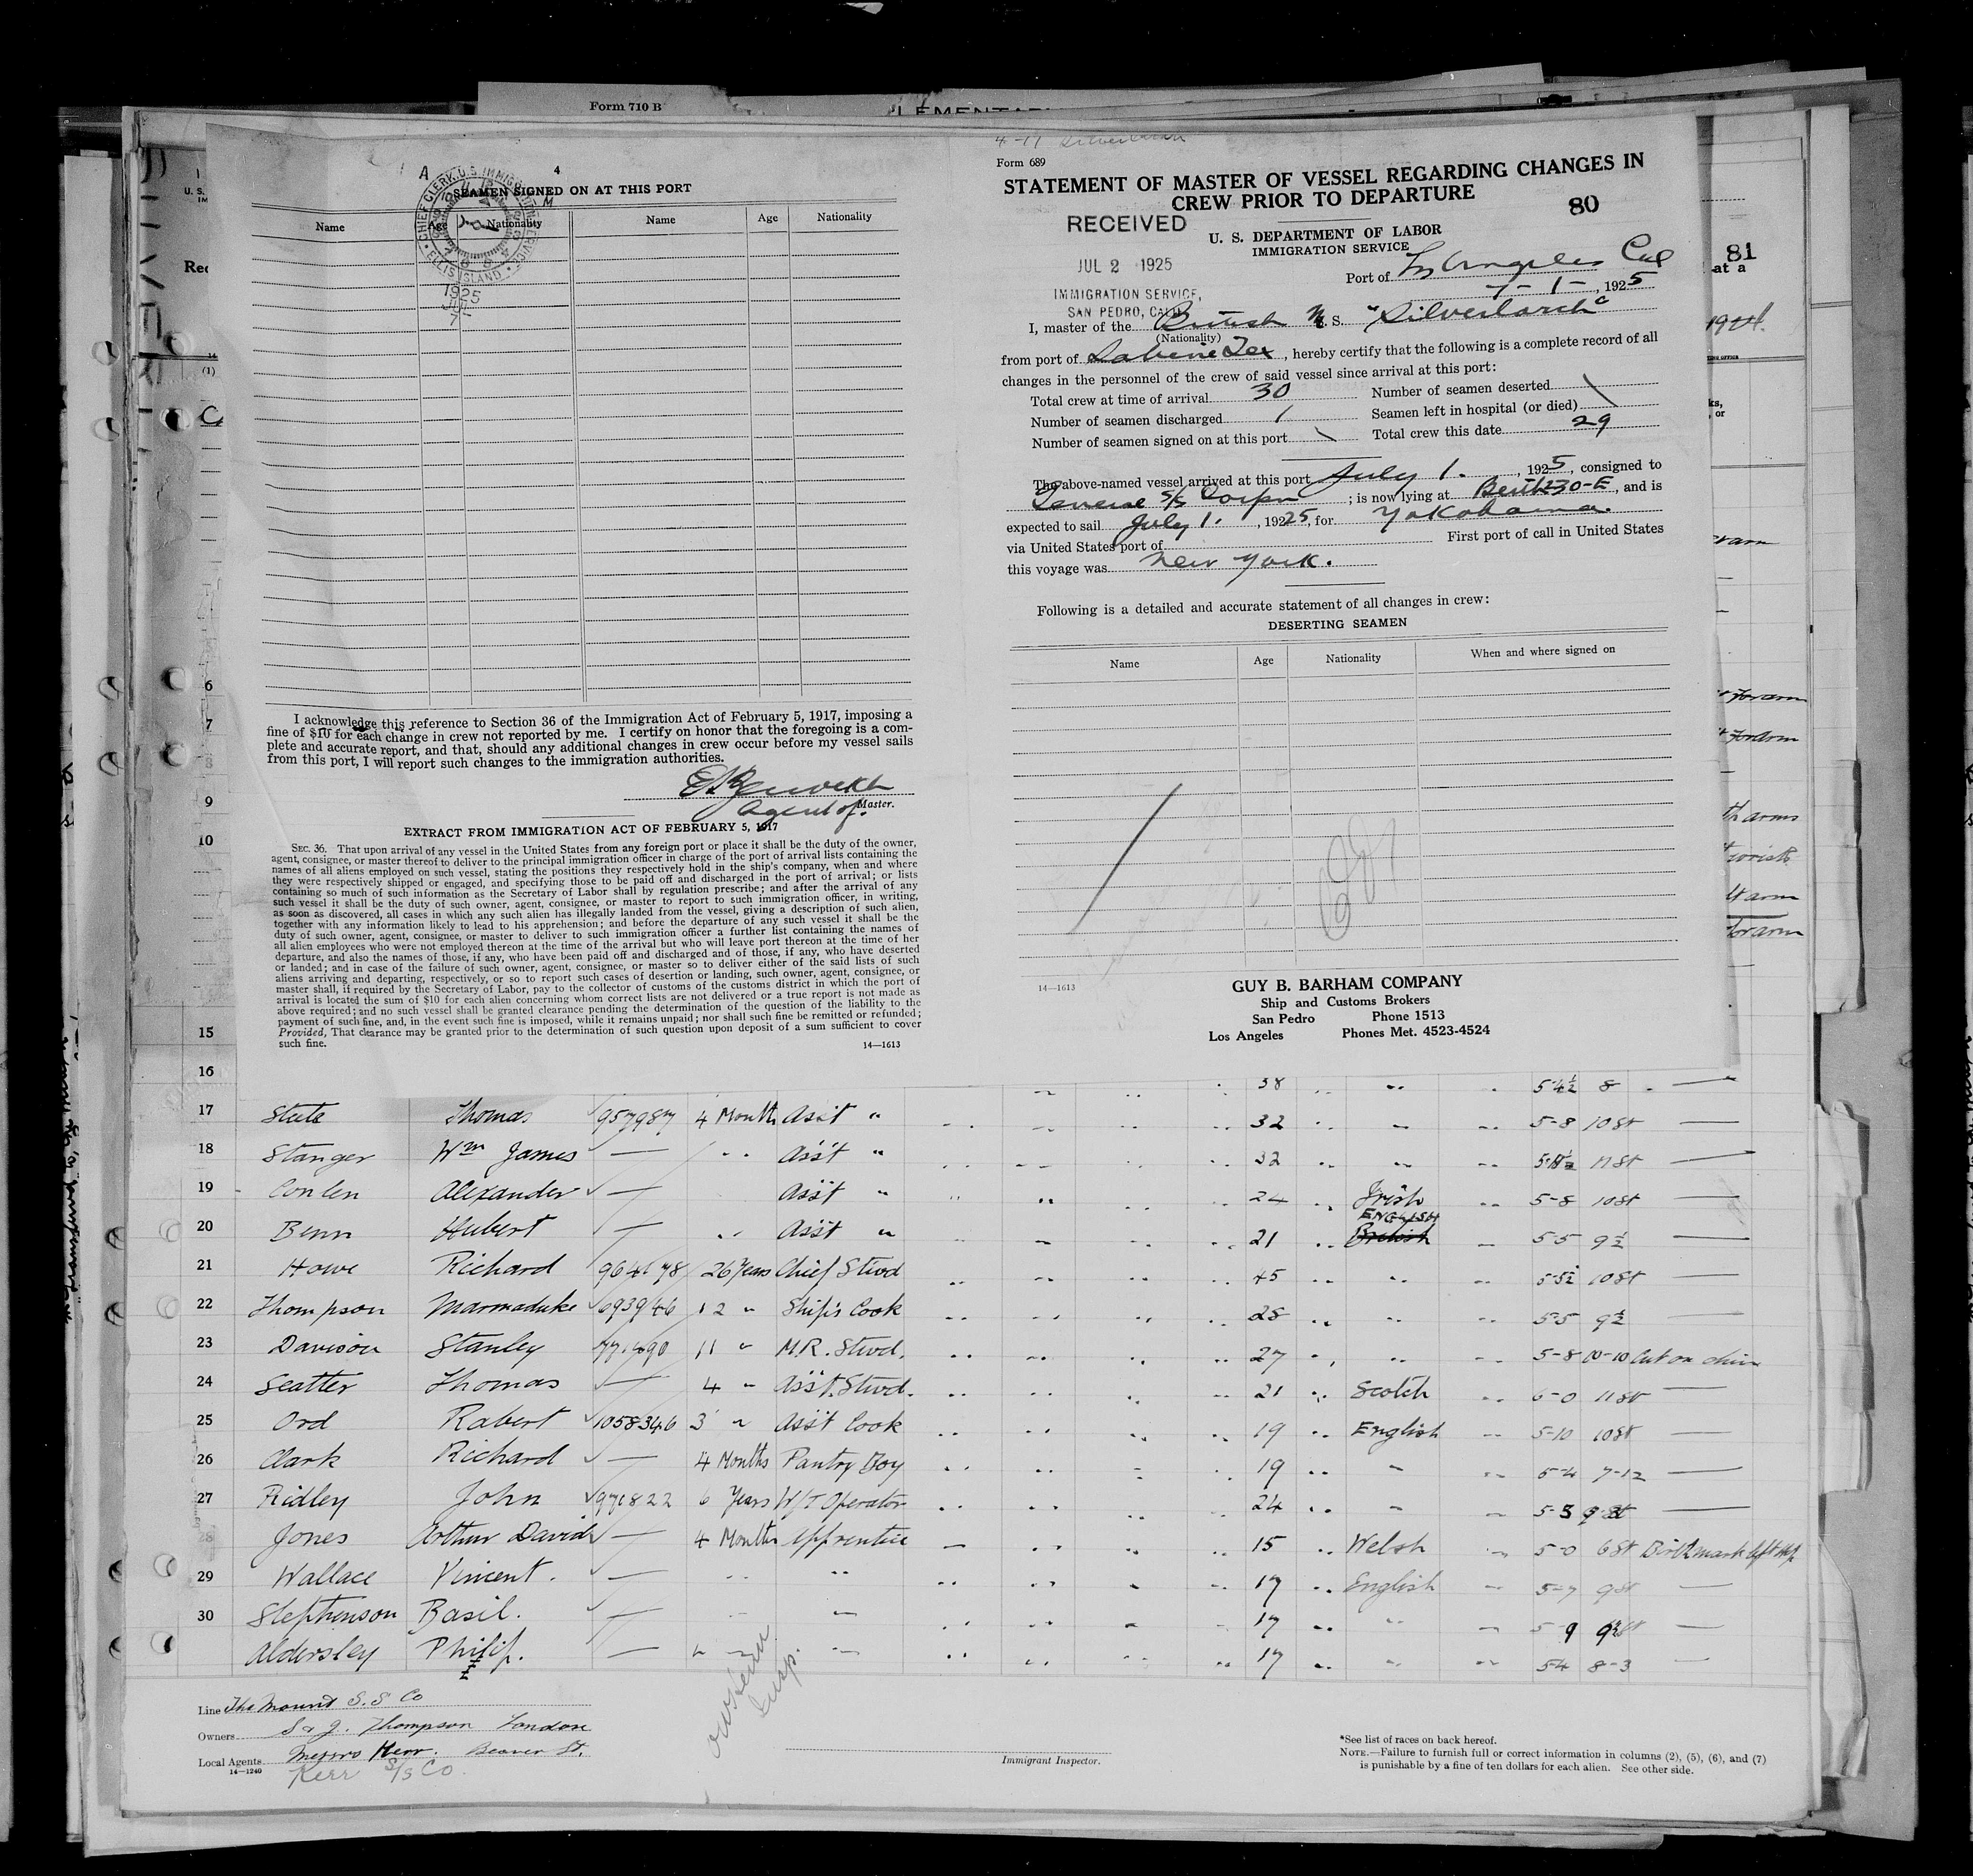 Form 710 B
A 4
SEAMEN SIGNED ON AT THIS PORT
M
CHIEF CLERK, U.S. IMMIGRATION SERVICE
ELLIS ISLAND
1925
Name Age Nationality Name Age Nationality
I acknowledge this reference to Section 36 of the Immigration Act of February 5, 1917, imposing a
fine of $10 for each change in crew not reported by me. I certify on honor that the foregoing is a com-
plete and accurate report, and that, should any additional changes in crew occur before my vessel sails
from this port, I will report such changes to the immigration authorities.
Agent of Master.
EXTRACT FROM IMMIGRATION ACT OF FEBRUARY 5, 1917
SEC. 36. That upon arrival of any vessel in the United States from any foreign port or place it shall be the duty of the owner,
agent, consignee, or master thereof to deliver to the principal immigration officer in charge of the port of arrival lists containing the
names of all aliens employed on such vessel, stating the positions they respectively hold in the ship's company, when and where
they were respectively shipped or engaged, and specifying those to be paid off and discharged in the port of arrival; or lists
containing so much of such information as the Secretary of Labor shall by regulation prescribe; and after the arrival of any
such vessel it shall be the duty of such owner, agent, consignee, or master to report to such immigration officer, in writing,
as soon as discovered, all cases in which any such alien has illegally landed from the vessel, giving a description of such alien,
together with any information likely to lead to his apprehension; and before the departure of any such vessel it shall be the
duty of such owner, agent, consignee, or master to deliver to such immigration officer a further list containing the names of
all alien employees who were not employed thereon at the time of the arrival but who will leave port thereon at the time of her
departure, and also the names of those, if any, who have been paid off and discharged and of those, if any, who have deserted
or landed; and in case of the failure of such owner, agent, consignee, or master so to deliver either of the said lists of such
aliens arriving and departing, respectively, or so to report such cases of desertion or landing, such owner, agent, consignee, or
master shall, if required by the Secretary of Labor, pay to the collector of customs of the customs district in which the port of
arrival is located the sum of $10 for each alien concerning whom correct lists are not delivered or a true report is not made as
above required; and no such vessel shall be granted clearance pending the determination of the question of the liability to the
payment of such fine, and, in the event such fine is imposed, while it remains unpaid; nor shall such fine be remitted or refunded;
Provided, That clearance may be granted prior to the determination of such question upon deposit of a sum sufficient to cover
such fine.
14—1613
Form 689
STATEMENT OF MASTER OF VESSEL REGARDING CHANGES IN
CREW PRIOR TO DEPARTURE
80
RECEIVED
JUL 2 1925
IMMIGRATION SERVICE,
SAN PEDRO, CALIF.
U. S. DEPARTMENT OF LABOR
IMMIGRATION SERVICE
Port of Los Angeles Cal
7-1-, 1925
I, master of the British M.S. "Silverlarch"
(Nationality)
from port of Sabine Tex, hereby certify that the following is a complete record of all
changes in the personnel of the crew of said vessel since arrival at this port:
Total crew at time of arrival 30 Number of seamen deserted \
Number of seamen discharged 1 Seamen left in hospital (or died) \
Number of seamen signed on at this port \ Total crew this date 29
The above-named vessel arrived at this port July 1., 1925, consigned to
General S/S Corpn; is now lying at Berth 230-E, and is
expected to sail July 1., 1925, for Yokohama.
via United States port of First port of call in United States
this voyage was New York.
Following is a detailed and accurate statement of all changes in crew:
DESERTING SEAMEN
Name Age Nationality When and where signed on
14—1613
GUY B. BARHAM COMPANY
Ship and Customs Brokers
San Pedro Phone 1513
Los Angeles Phones Met. 4523-4524
81
at a
6
7
8
9
10
15
16 38 " " " 5 4½ 8
17 Thomas 957987 4 Months Ass't " 32 5-8 10 St
18 Stanger Wm James — " Ass't " 32 11 St
19 Conlen Alexander — Ass't " 24 " Irish 5-8 10 St
20 Benn Hubert — " Ass't " 21 " ENGLISH British 5-5 9½
21 Howe Richard 26 Years Chief Stwd 45 5-5½ 10 St
22 Thompson Marmaduke 693946 12 " Ship's Cook 28 5-5 9½
23 Davison Stanley 771490 11 " M.R. Stwd. 27 5-8 10-10 Cut on chin
24 Seatter Thomas — 4 " Ass't. Stwd. 21 " Scotch 6-0 11 St
25 Ord Robert 1058346 3 " Ass't Cook 19 " English 5-10 10 St
26 Clark Richard — 4 Months Pantry Boy 19 5-4 7-12
27 Ridley John 971822 6 Years W/T Operator 24
28 Jones Arthur David — 4 Months Apprentice 15 " Welsh 5-0 6 St Birthmark left hip
29 Wallace Vincent. — " " 17 " English 5-7 9 St
30 Stephenson Basil. — " " 17 5 9
Aldersley Philip. — " " 17 5-4 8-3
Line The Mount S.S Co
Owners S & J. Thompson London
Local Agents Messrs Kerr. Beaver St.
14—1240
Kerr S/S Co.
Insp.
Immigrant Inspector.
*See list of races on back hereof.
NOTE.—Failure to furnish full or correct information in columns (2), (5), (6), and (7)
is punishable by a fine of ten dollars for each alien. See other side.